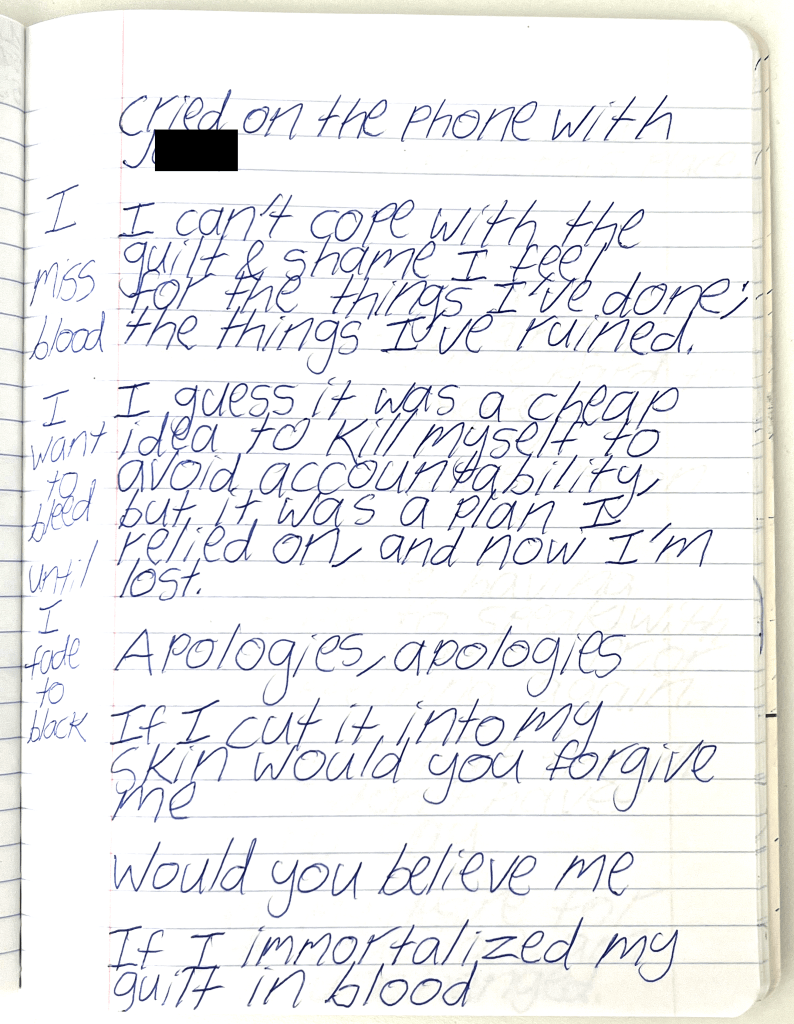 cried on the phone with
I can't cope with the
guilt & shame I feel
for the things I've done;
the things I've ruined.
I guess it was a cheap
idea to kill myself to
avoid accountability,
but it was a plan I
relied on, and now I'm
lost.
Apologies, apologies
If I cut it into my
skin would you forgive
me
Would you believe me
If I immortalized my
guilt in blood
I
miss
blood
I
want
to
bleed
until
I
fade
to
black